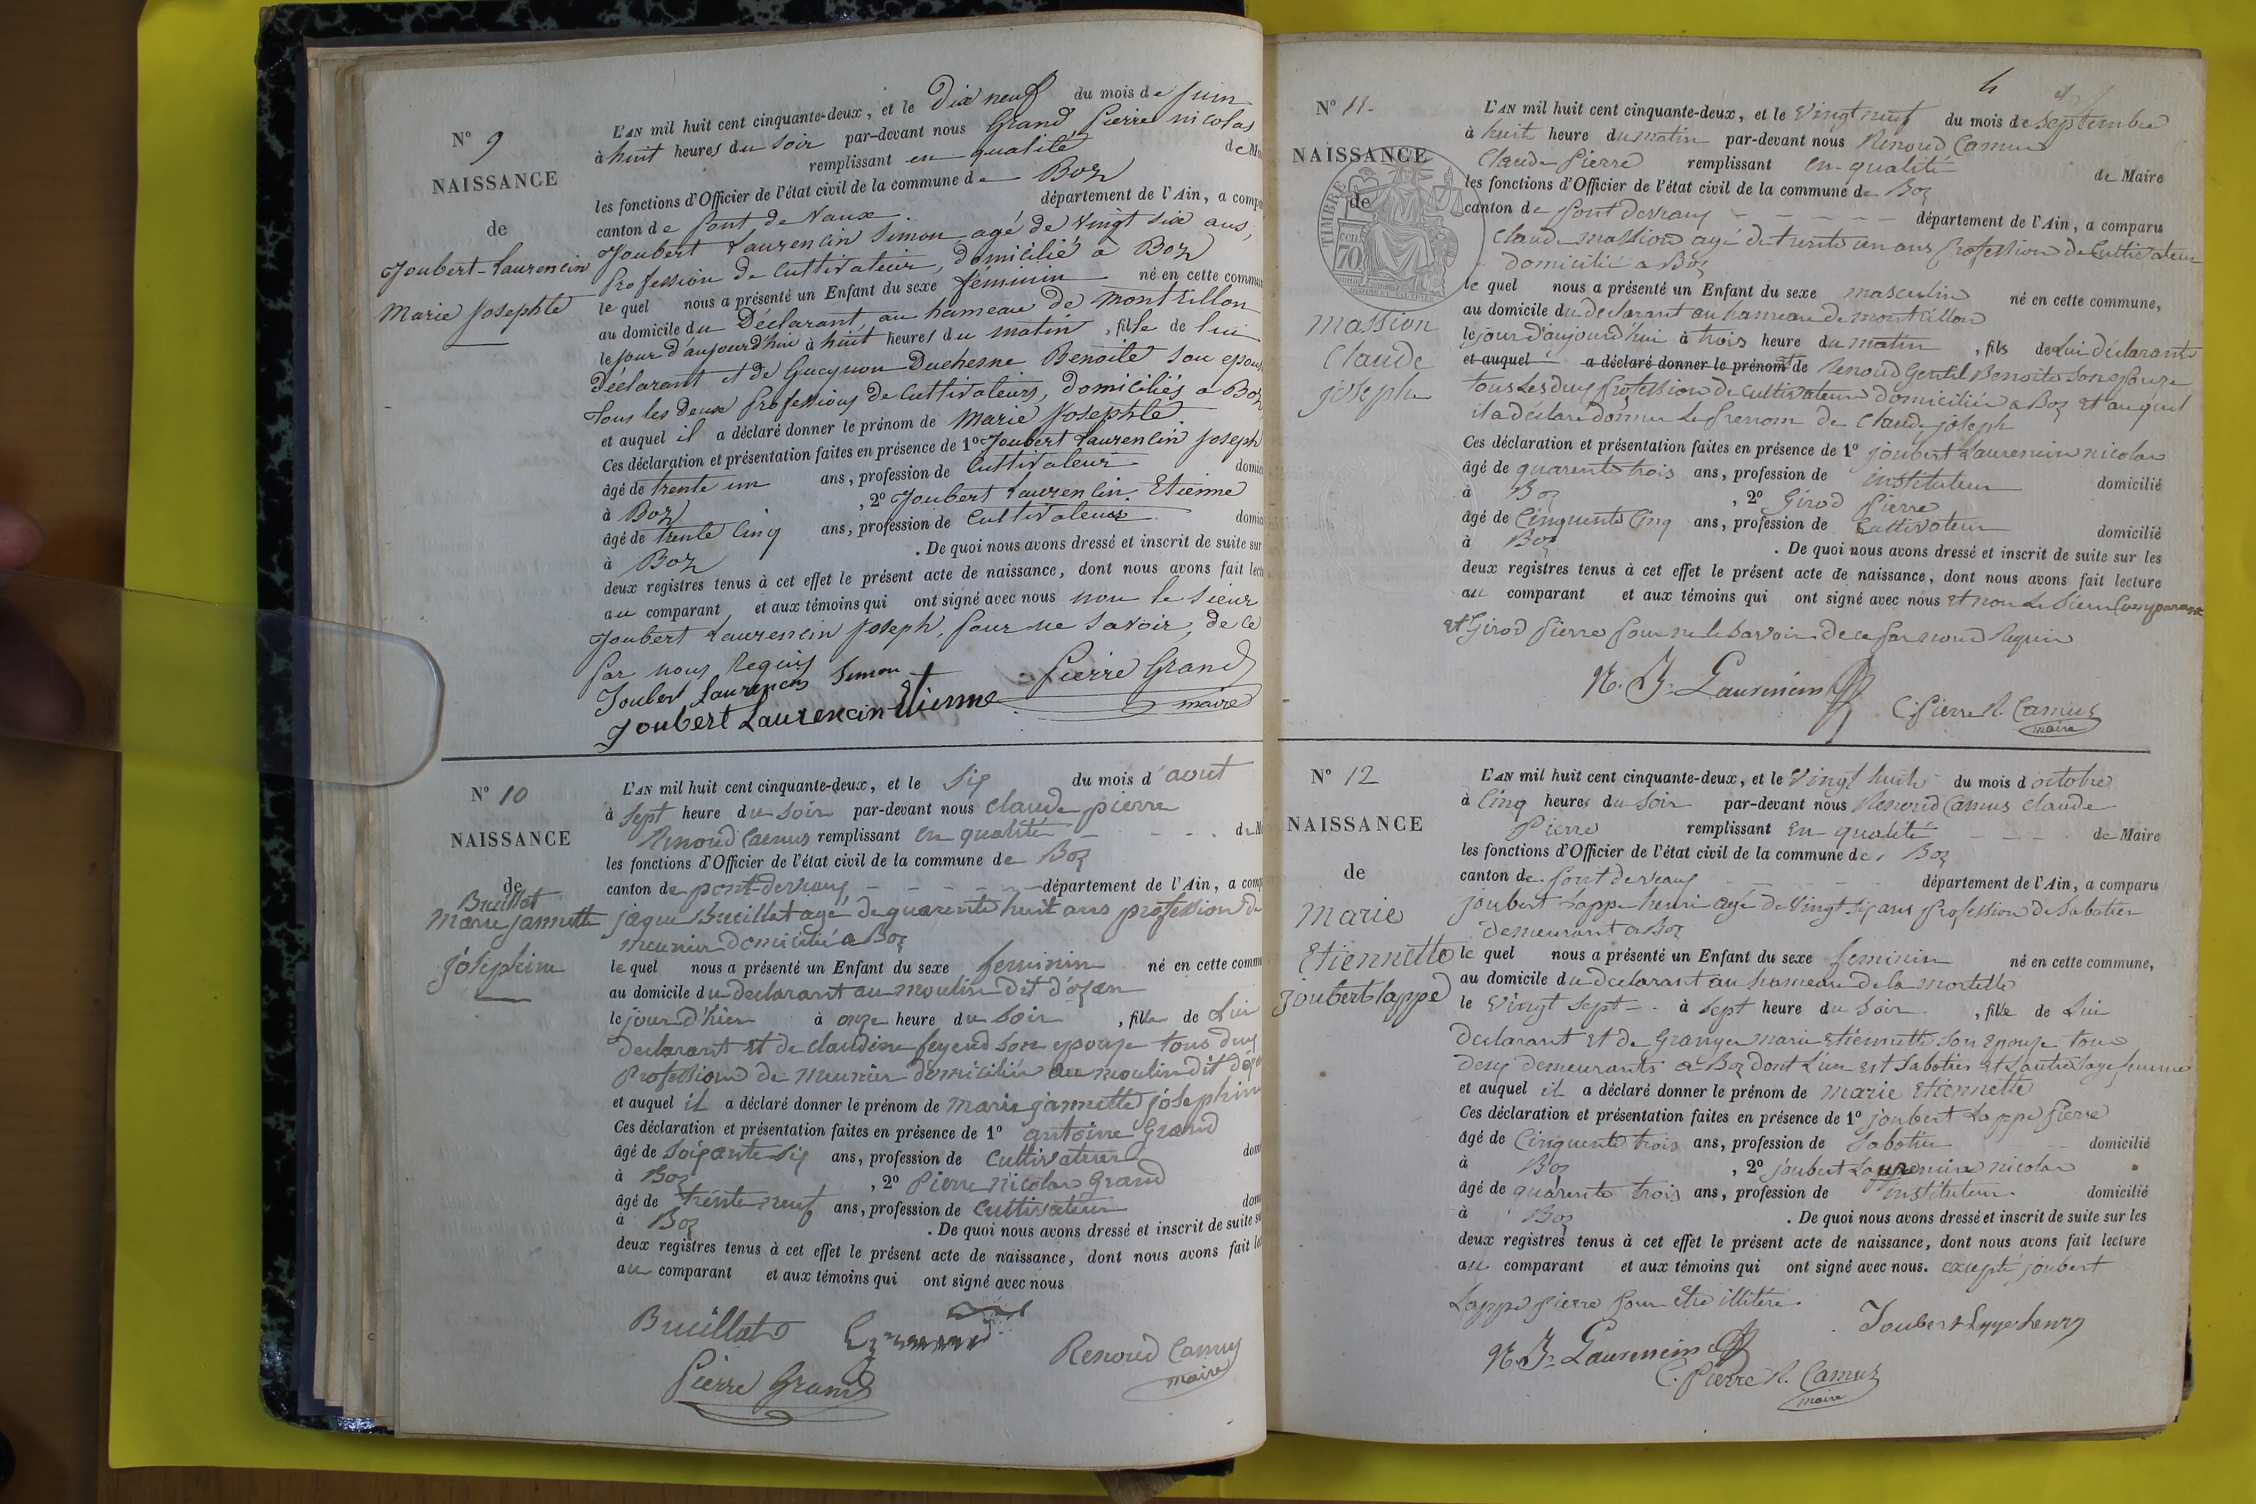 N° 9
NAISSANCE
de
Joubert-Laurencin
Marie Josephte
L'AN mil huit cent cinquante-deux, et le Dix neuf du mois de Juin
à huit heures du soir par-devant nous Grand Pierre nicolas
remplissant en qualité de M
les fonctions d'Officier de l'état civil de la commune de Boz
canton de Pont de Vaux. département de l'Ain, a comp
Joubert Laurencin Simon agé de vingt six ans,
Profession de Cultivateur, domicilié à Boz
le quel nous a présenté un Enfant du sexe féminin né en cette commu
au domicile du Déclarant au hameau de Montrillon
le jour d'aujourd'hui à huit heures du matin, fille de lui
Déclarant et de Guyenon Duchesne Benoite son epous
tous les deux professions de Cultivateurs, domiciliés a Boz
et auquel il a déclaré donner le prénom de Marie Josephte
Ces déclaration et présentation faites en présence de 1° Joubert Laurencin Joseph
âgé de trente un ans, profession de Cultivateur domici
à Boz, 2° Joubert Laurencin Etienne
âgé de trente cinq ans, profession de Cultivateur domici
à Boz. De quoi nous avons dressé et inscrit de suite sur
deux registres tenus à cet effet le présent acte de naissance, dont nous avons fait lect
au comparant et aux témoins qui ont signé avec nous non le Sieur
Joubert Laurencin Joseph, pour ne savoir, de ce
par nous Requis
Joubert Laurencin Simon Pierre Grand
Joubert Laurencin Etienne maire
N° 10
NAISSANCE
de
Buillat
Marie jannette
joséphine
L'AN mil huit cent cinquante-deux, et le Six du mois d'aout
à sept heure du soir par-devant nous claude pierre
Renoud Camus remplissant en qualité de M
les fonctions d'Officier de l'état civil de la commune de Boz
canton de pont-devaux, département de l'Ain, a comp
jaque Buillat agé de quarente huit ans profession de
meunier domicilié a Boz
le quel nous a présenté un Enfant du sexe feminin né en cette comm
au domicile du declarant au moulin dit d'ozan
le jour d'hier à onze heure du soir, fille de Lui
declarant et de claudine feyend son epouse tous deux
Profession de meunier domiciliés au moulin dit d'oz
et auquel il a déclaré donner le prénom de marie jannette joséphine
Ces déclaration et présentation faites en présence de 1° antoine Grand
âgé de soixante Six ans, profession de Cultivateur dom
à Boz, 2° Pierre nicolas Grand
âgé de trente neuf ans, profession de Cultivateur dom
à Boz. De quoi nous avons dressé et inscrit de suite su
deux registres tenus à cet effet le présent acte de naissance, dont nous avons fait le
au comparant et aux témoins qui ont signé avec nous
Buillat
Pierre Grand Renoud Camus
maire
4
N° 11.
NAISSANCE
de
TIMBRE
70
massion
Claude
joseph
L'AN mil huit cent cinquante-deux, et le Vingt neuf du mois de Septembre
à huit heure du matin par-devant nous Renoud Camus
Claude Pierre remplissant en qualité de Maire
les fonctions d'Officier de l'état civil de la commune de Boz
canton de Pont devaux département de l'Ain, a comparu
Claude massion agé de trente un ans Profession de Cultivateur
domicilié a Boz
le quel nous a présenté un Enfant du sexe masculin né en cette commune,
au domicile du declarant au hameau de montrillon
le jour d'aujourd'hui à trois heure du matin, fils de Lui déclarant
et auquel a déclaré donner le prénom et de Renoud Gentil Benoite Son epouse
tous Les deux profession de Cultivateur domiciliés a Boz et auquel
il a déclaré donner Le Prenom de Claude joseph
Ces déclaration et présentation faites en présence de 1° joubert Laurencin nicolas
âgé de quarente trois ans, profession de instituteur domicilié
à Boz, 2° Girod Pierre
âgé de Cinquente Cinq ans, profession de Cultivateur domicilié
à Boz. De quoi nous avons dressé et inscrit de suite sur les
deux registres tenus à cet effet le présent acte de naissance, dont nous avons fait lecture
au comparant et aux témoins qui ont signé avec nous et non Le Sieur Comparant
et Girod Pierre Pour ne le Savoir de ce par noud Requis
N. J. Laurencin C. Pierre R. Camus
maire
N° 12
NAISSANCE
de
Marie
Etiennette
joubert Lappe
L'AN mil huit cent cinquante-deux, et le Vingt huit du mois d'octobre
à Cinq heures du Soir par-devant nous Renoud Camus Claude
Pierre remplissant en qualité de Maire
les fonctions d'Officier de l'état civil de la commune de Boz
canton de Pont devaux département de l'Ain, a comparu
joubert Lappe henri agé de Vingt Six ans Profession de Sabotier
demeurant a Boz
le quel nous a présenté un Enfant du sexe feminin né en cette commune,
au domicile du declarant au hameau de la mortelle
le Vingt Sept à sept heure du Soir, fille de Lui
declarant et de Granger marie Etiennette Son Epouse tous
deux demeurants a Boz dont L'un est Sabotier et L'autre Sage femme
et auquel il a déclaré donner le prénom de marie Etiennette
Ces déclaration et présentation faites en présence de 1° joubert Lappe Pierre
âgé de Cinquente trois ans, profession de Sabotier domicilié
à Boz, 2° joubert Laurencin nicolas
âgé de quarente trois ans, profession de instituteur. domicilié
à Boz. De quoi nous avons dressé et inscrit de suite sur les
deux registres tenus à cet effet le présent acte de naissance, dont nous avons fait lecture
au comparant et aux témoins qui ont signé avec nous. excepté joubert
Lappe Pierre Pour être illitéré.
Joubert Lappe henry
N. J. Laurencin
C. Pierre R. Camus
maire